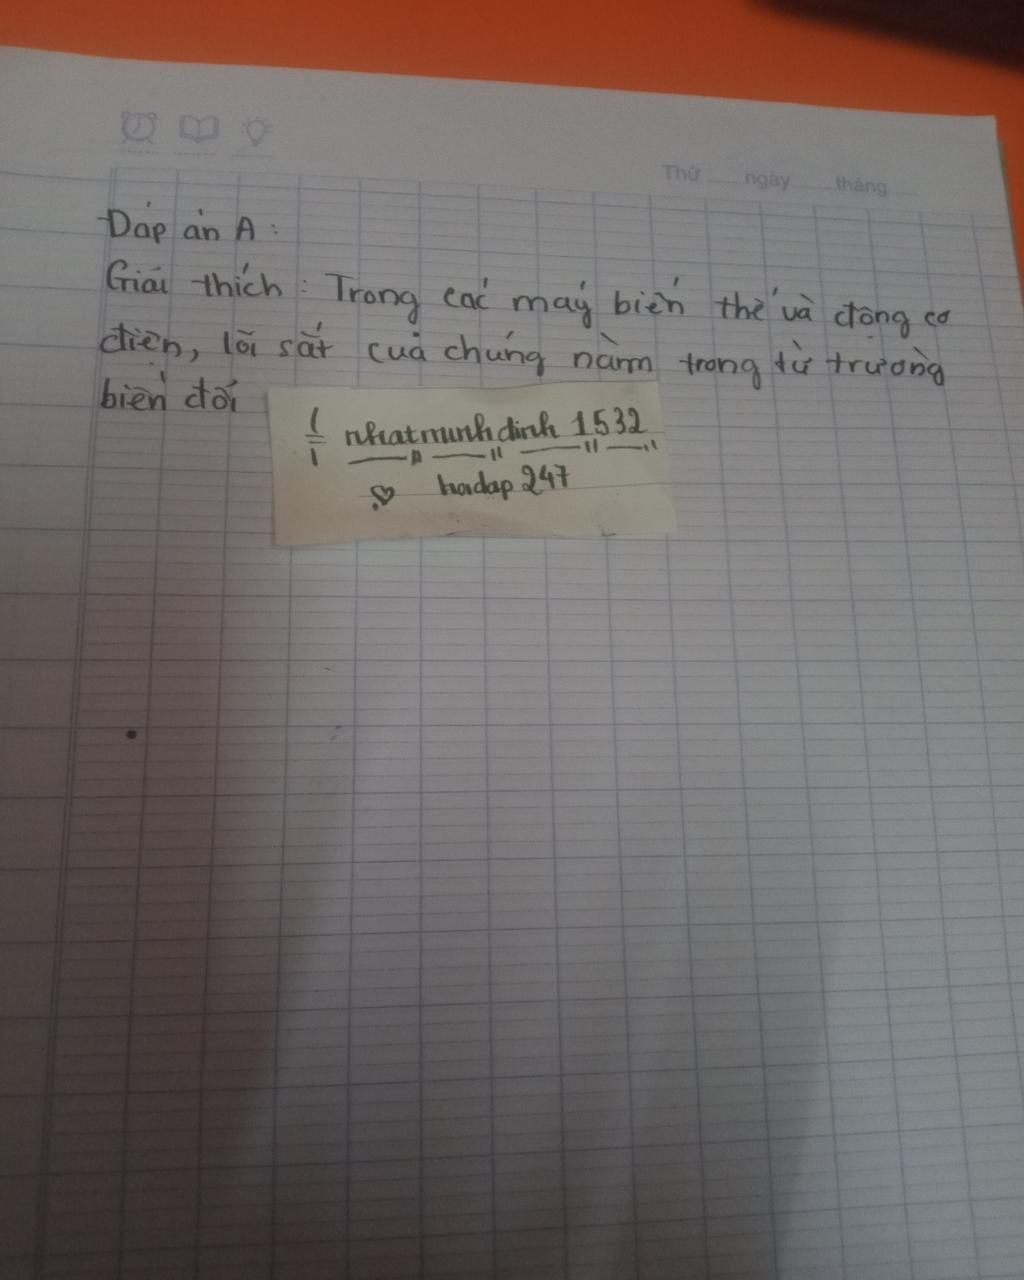 Thứ ngày tháng
Đáp án A:
Giải thích: Trong các máy biến thế và động cơ
điện, lõi sắt của chúng nằm trong từ trường
biến đổi
nhatminhdinh 1532
hoidap 247